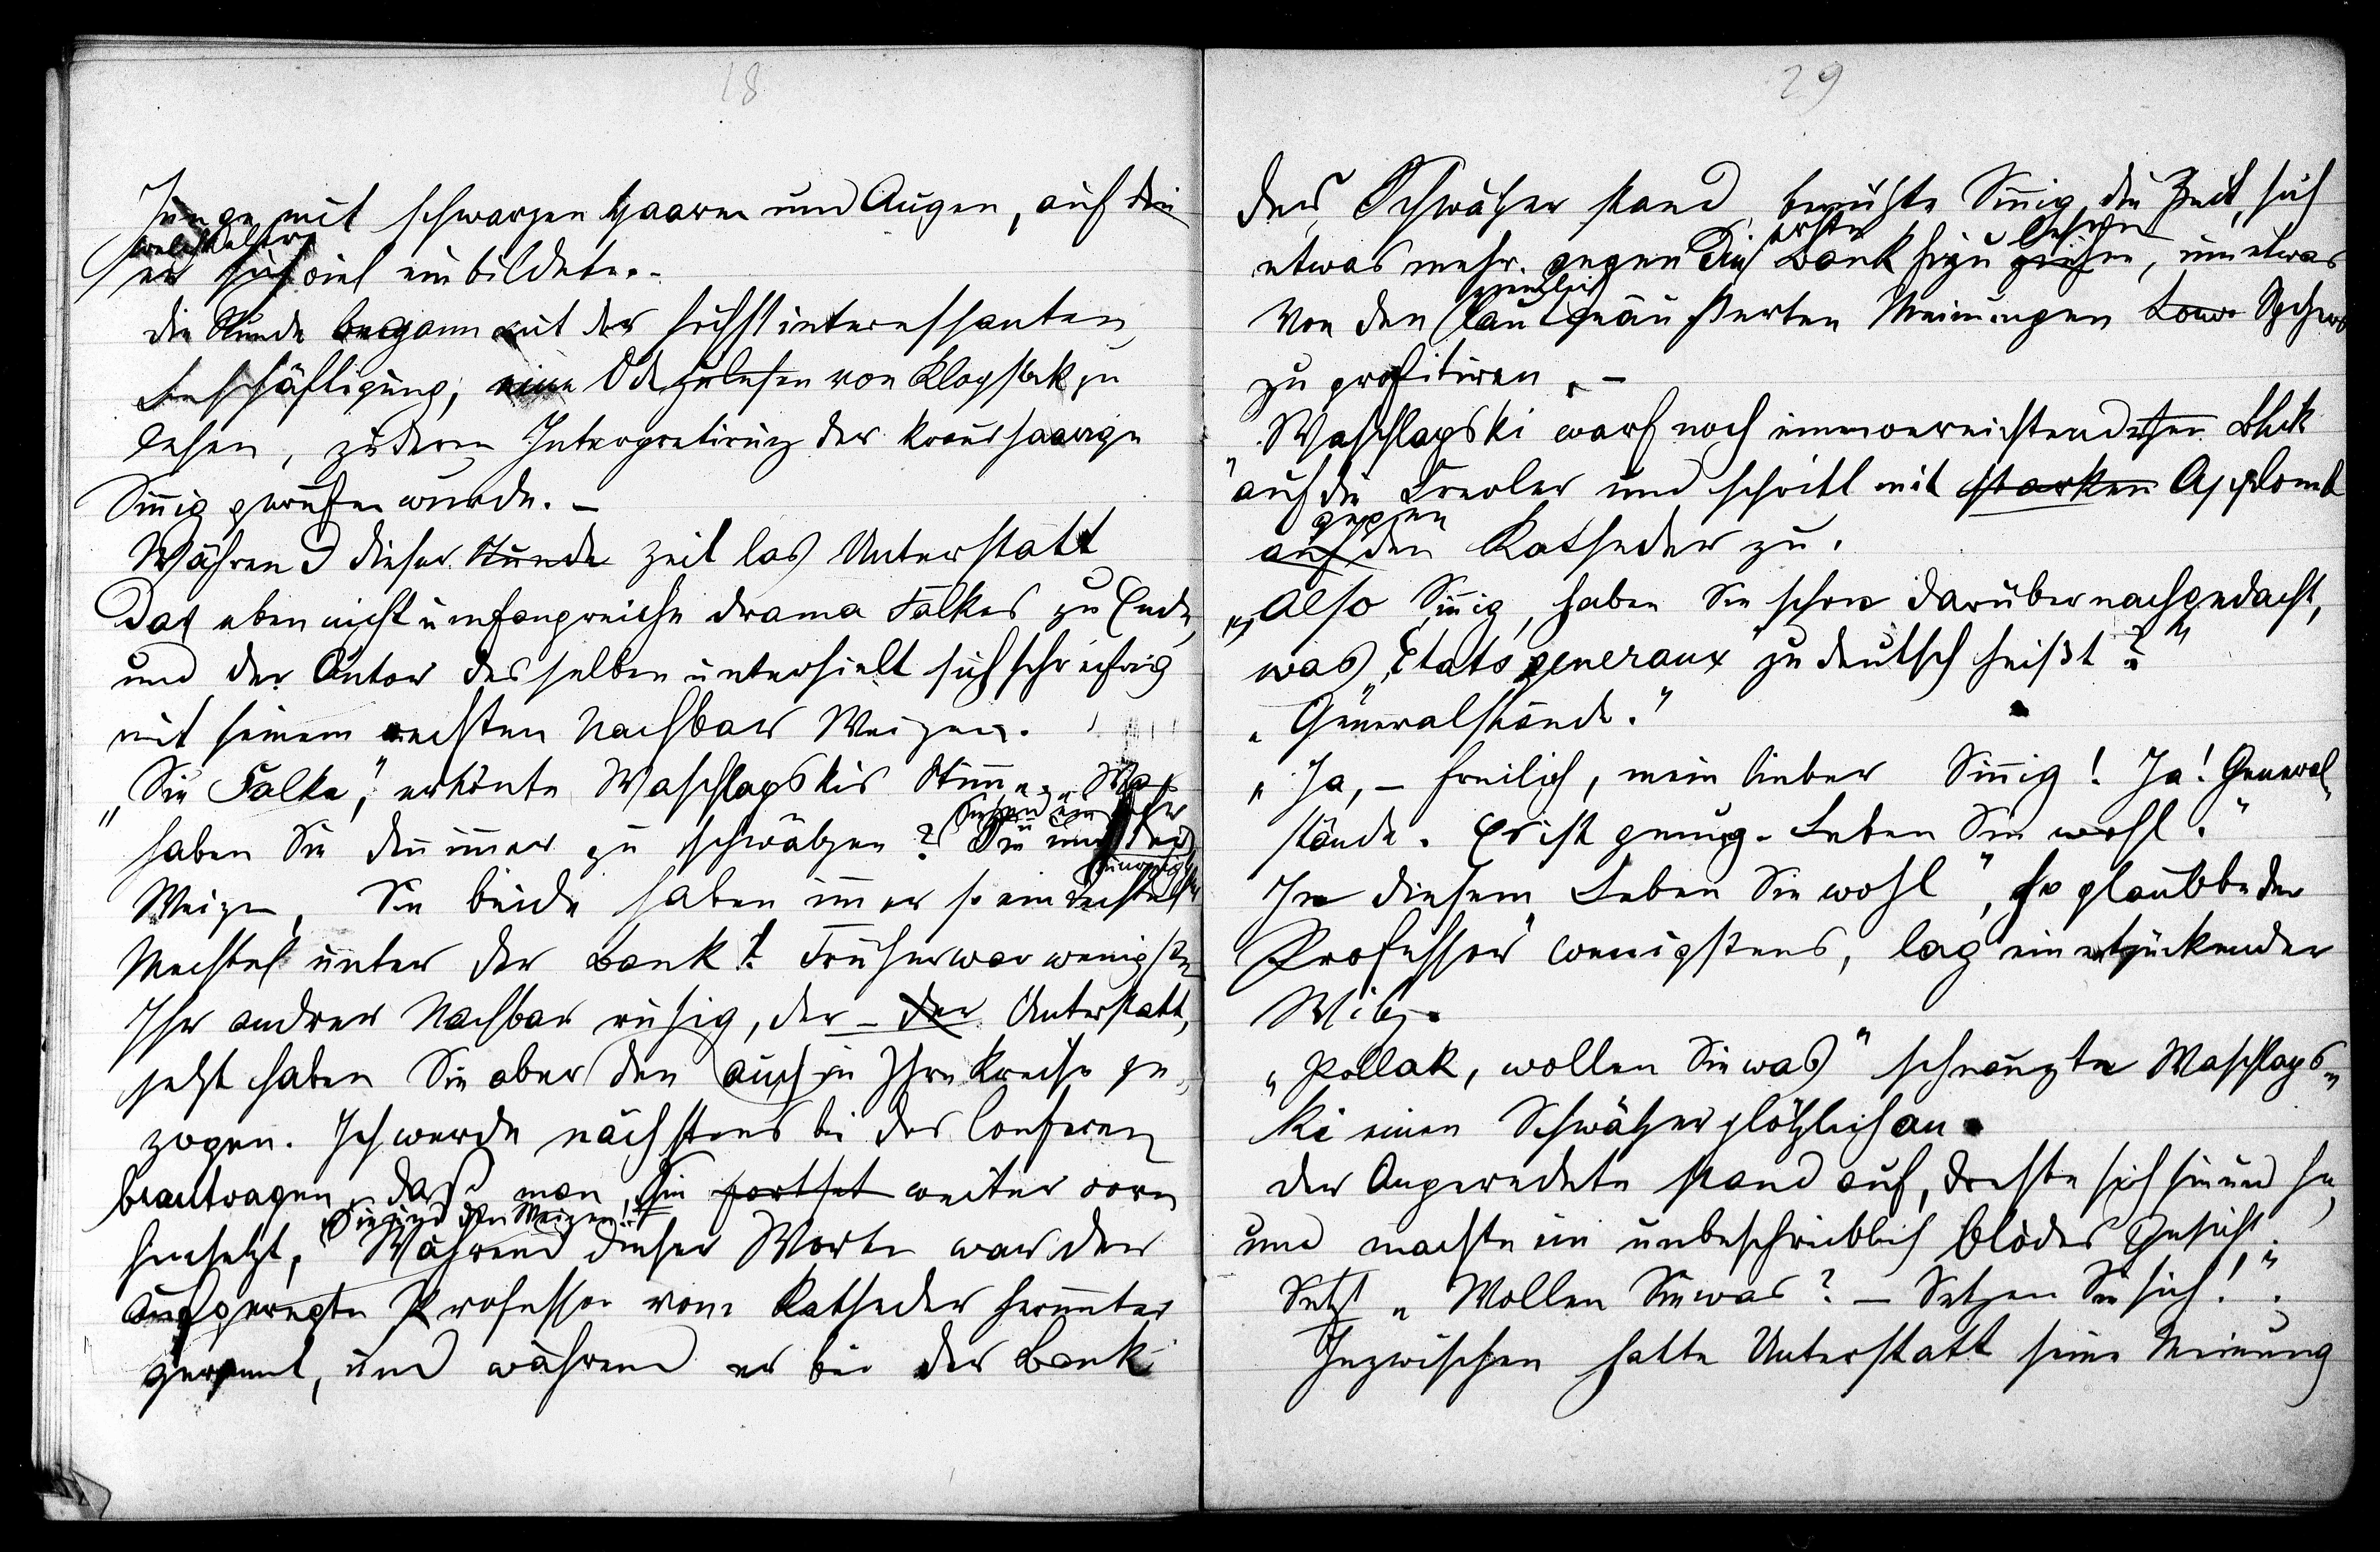 18
Junge mit schwarzen Haaren und Augen, auf die
welch letztere
er sich viel einbildete.-
die Stunde begann mit der höchst interessanten
Beschäftigung, eine Ode zu lesen von Klopstok zu
lesen, zu deren Interpretirung der kraushaarige
Sinig gerufen wurde. -
Während dieser Stunde Zeit las Unterstatt
Das eben nicht umfangreiche drama Falkes zu Ende,
und der Autor desselben unterhielt sich sehr eifrig
mit seinem rechten Nachbar Weizen.
"Sie Falke," ertönte Waschlapskis Stime. "Was
haben Sie den imer zu schwätzen? Sie und der
Weizen, Sie beide haben imer so ein Techtel
Mechtel unter der Bank! Früher war wenigstens
Ihr andrer Nachbar ruhig, der - der Unterstatt,
jetzt haben Sie aber den auch in Ihre Kreise ge-
zogen. Ich werde nächstens bei der Conferenz
beantragen, daß man Sie fortset weiter vorn
hinsetzt, Während dieser Worte war der
aufgeregte Professor vom Katheder herunter
gerannt, und während er bei der Bank
29
der Schwätzer stand, benützte Sinig die Zeit, sich
erste
etwas mehr gegen die Bank hinzu ziehen, um etwas
ziemlich
Von den laut geäußerten Meinungen
zu profitiren. -
Waschlapski warf noch einen vernichtenden Blick
auf die Frevler und schritt mit starken Applomb
gegen
auf den Katheder zu.
"Also Sinig, haben Sie schon darüber nachgedacht,
was "Etats generaux" zu deutsch heißt?"
"Generalstände."
"Ja, - freilich, mein lieber Sinig! Ja! General-
stände. Es ist genug. Leben Sie wohl."
In diesem "Leben Sie wohl", so glaubte der
Professor wenigstens, lag ein entzückender
Witz.
"Pollak, wollen Sie was" schnauzte Waschlaps-
ki einen Schwätzer plötzlich an.
der Angeredete stand auf, drehte sich hin und her,
und machte ein unbeschreiblich blödes Gesicht.
Setzt "Wollen Sie was? - Setzen Sie sich!".
Inzwischen hatte Unterstatt seine Meinung